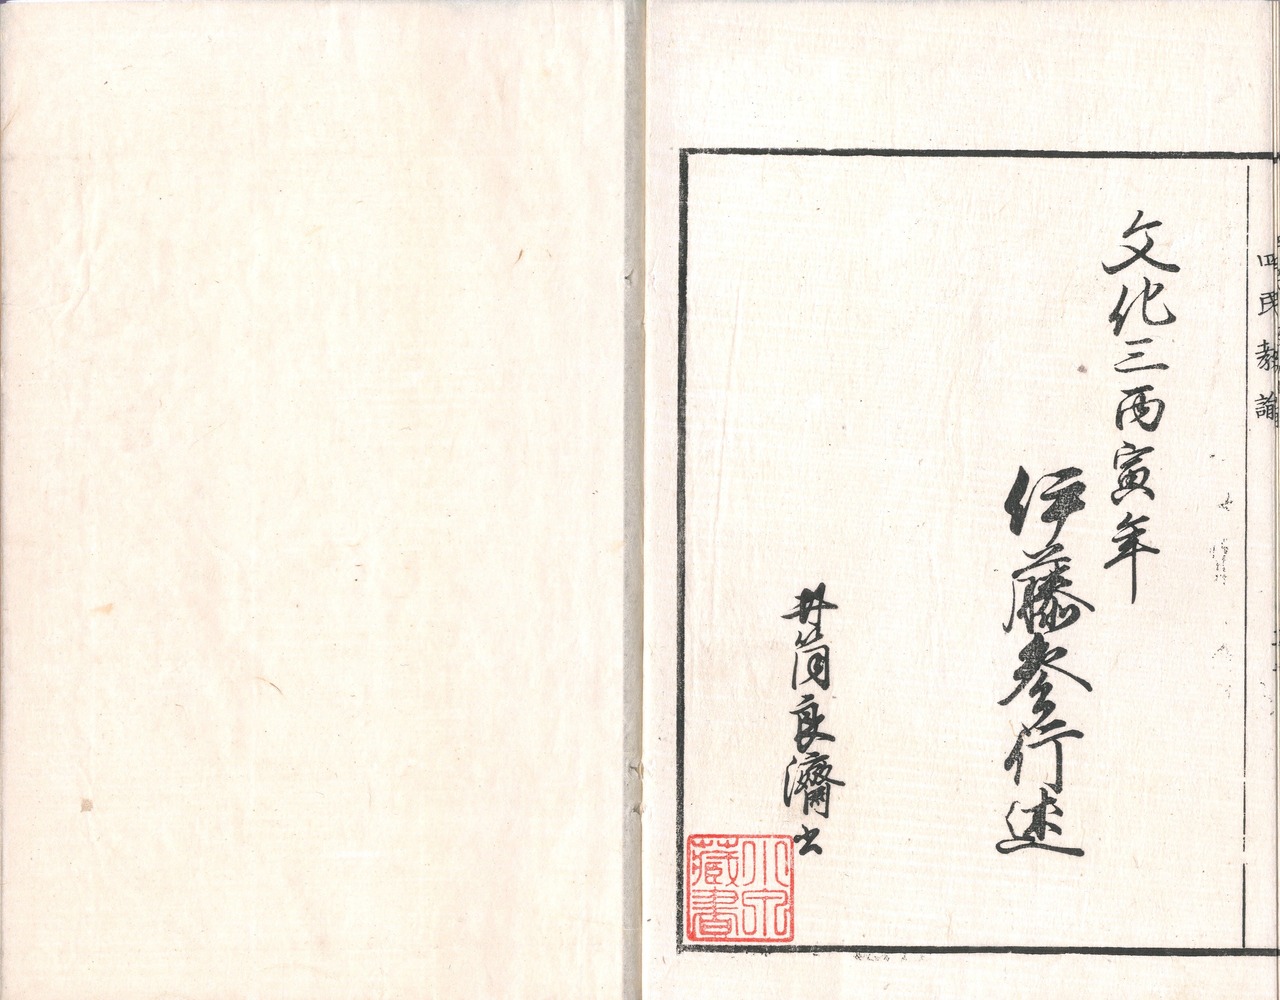 四民教諭
文化三丙寅年
伊藤参行述
井筒良濟書
小泉
藏書